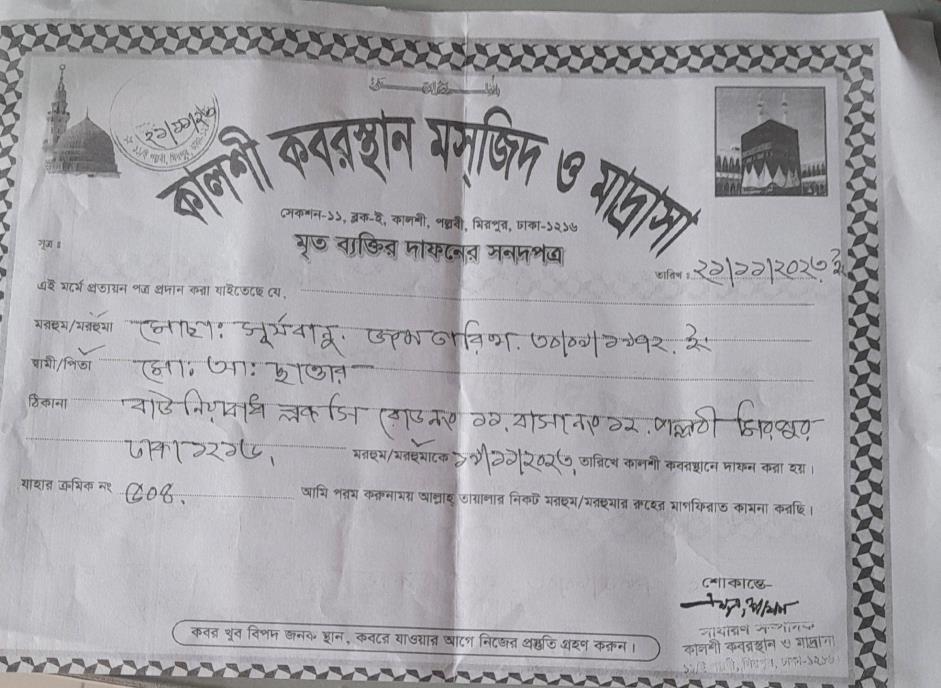 ২১/১১/২৩
কালশী কবরস্থান মস্জিদ ও মাদ্রাসা
সেকশন-১১, ব্লক-ই, কালশী, পল্লবী, মিরপুর, ঢাকা-১২১৬
মৃত ব্যক্তির দাফনের সনদপত্র
সূত্র ঃ
তারিখ ঃ ২১/১১/২০২৩ ইং
এই মর্মে প্রত্যয়ন পত্র প্রদান করা যাইতেছে যে,
মরহুম/মরহুমা মোছা: সূর্যবানু. জন্ম তারিখ. ৩০/০১/১৯৭২. ইং
স্বামী/পিতা মো: আ: ছাত্তার
ঠিকানা বাউনিয়াবাধ ব্লক সি রোড নং ১১, বাসা নং ১২, পল্লবী মিরপুর,
ঢাকা ১২১৬, মরহুম/মরহুমাকে ১৭/১১/২০২৩ তারিখে কালশী কবরস্থানে দাফন করা হয়।
যাহার ক্রমিক নং ৫০৪. আমি পরম করুনাময় আল্লাহ্ তায়ালার নিকট মরহুম/মরহুমার রুহের মাগফিরাত কামনা করছি।
শোকান্তে-
সাধারণ সম্পাদক
কালশী কবরস্থান ও মাদ্রাসা
কবর খুব বিপদ জনক স্থান, কবরে যাওয়ার আগে নিজের প্রস্তুতি গ্রহণ করুন।